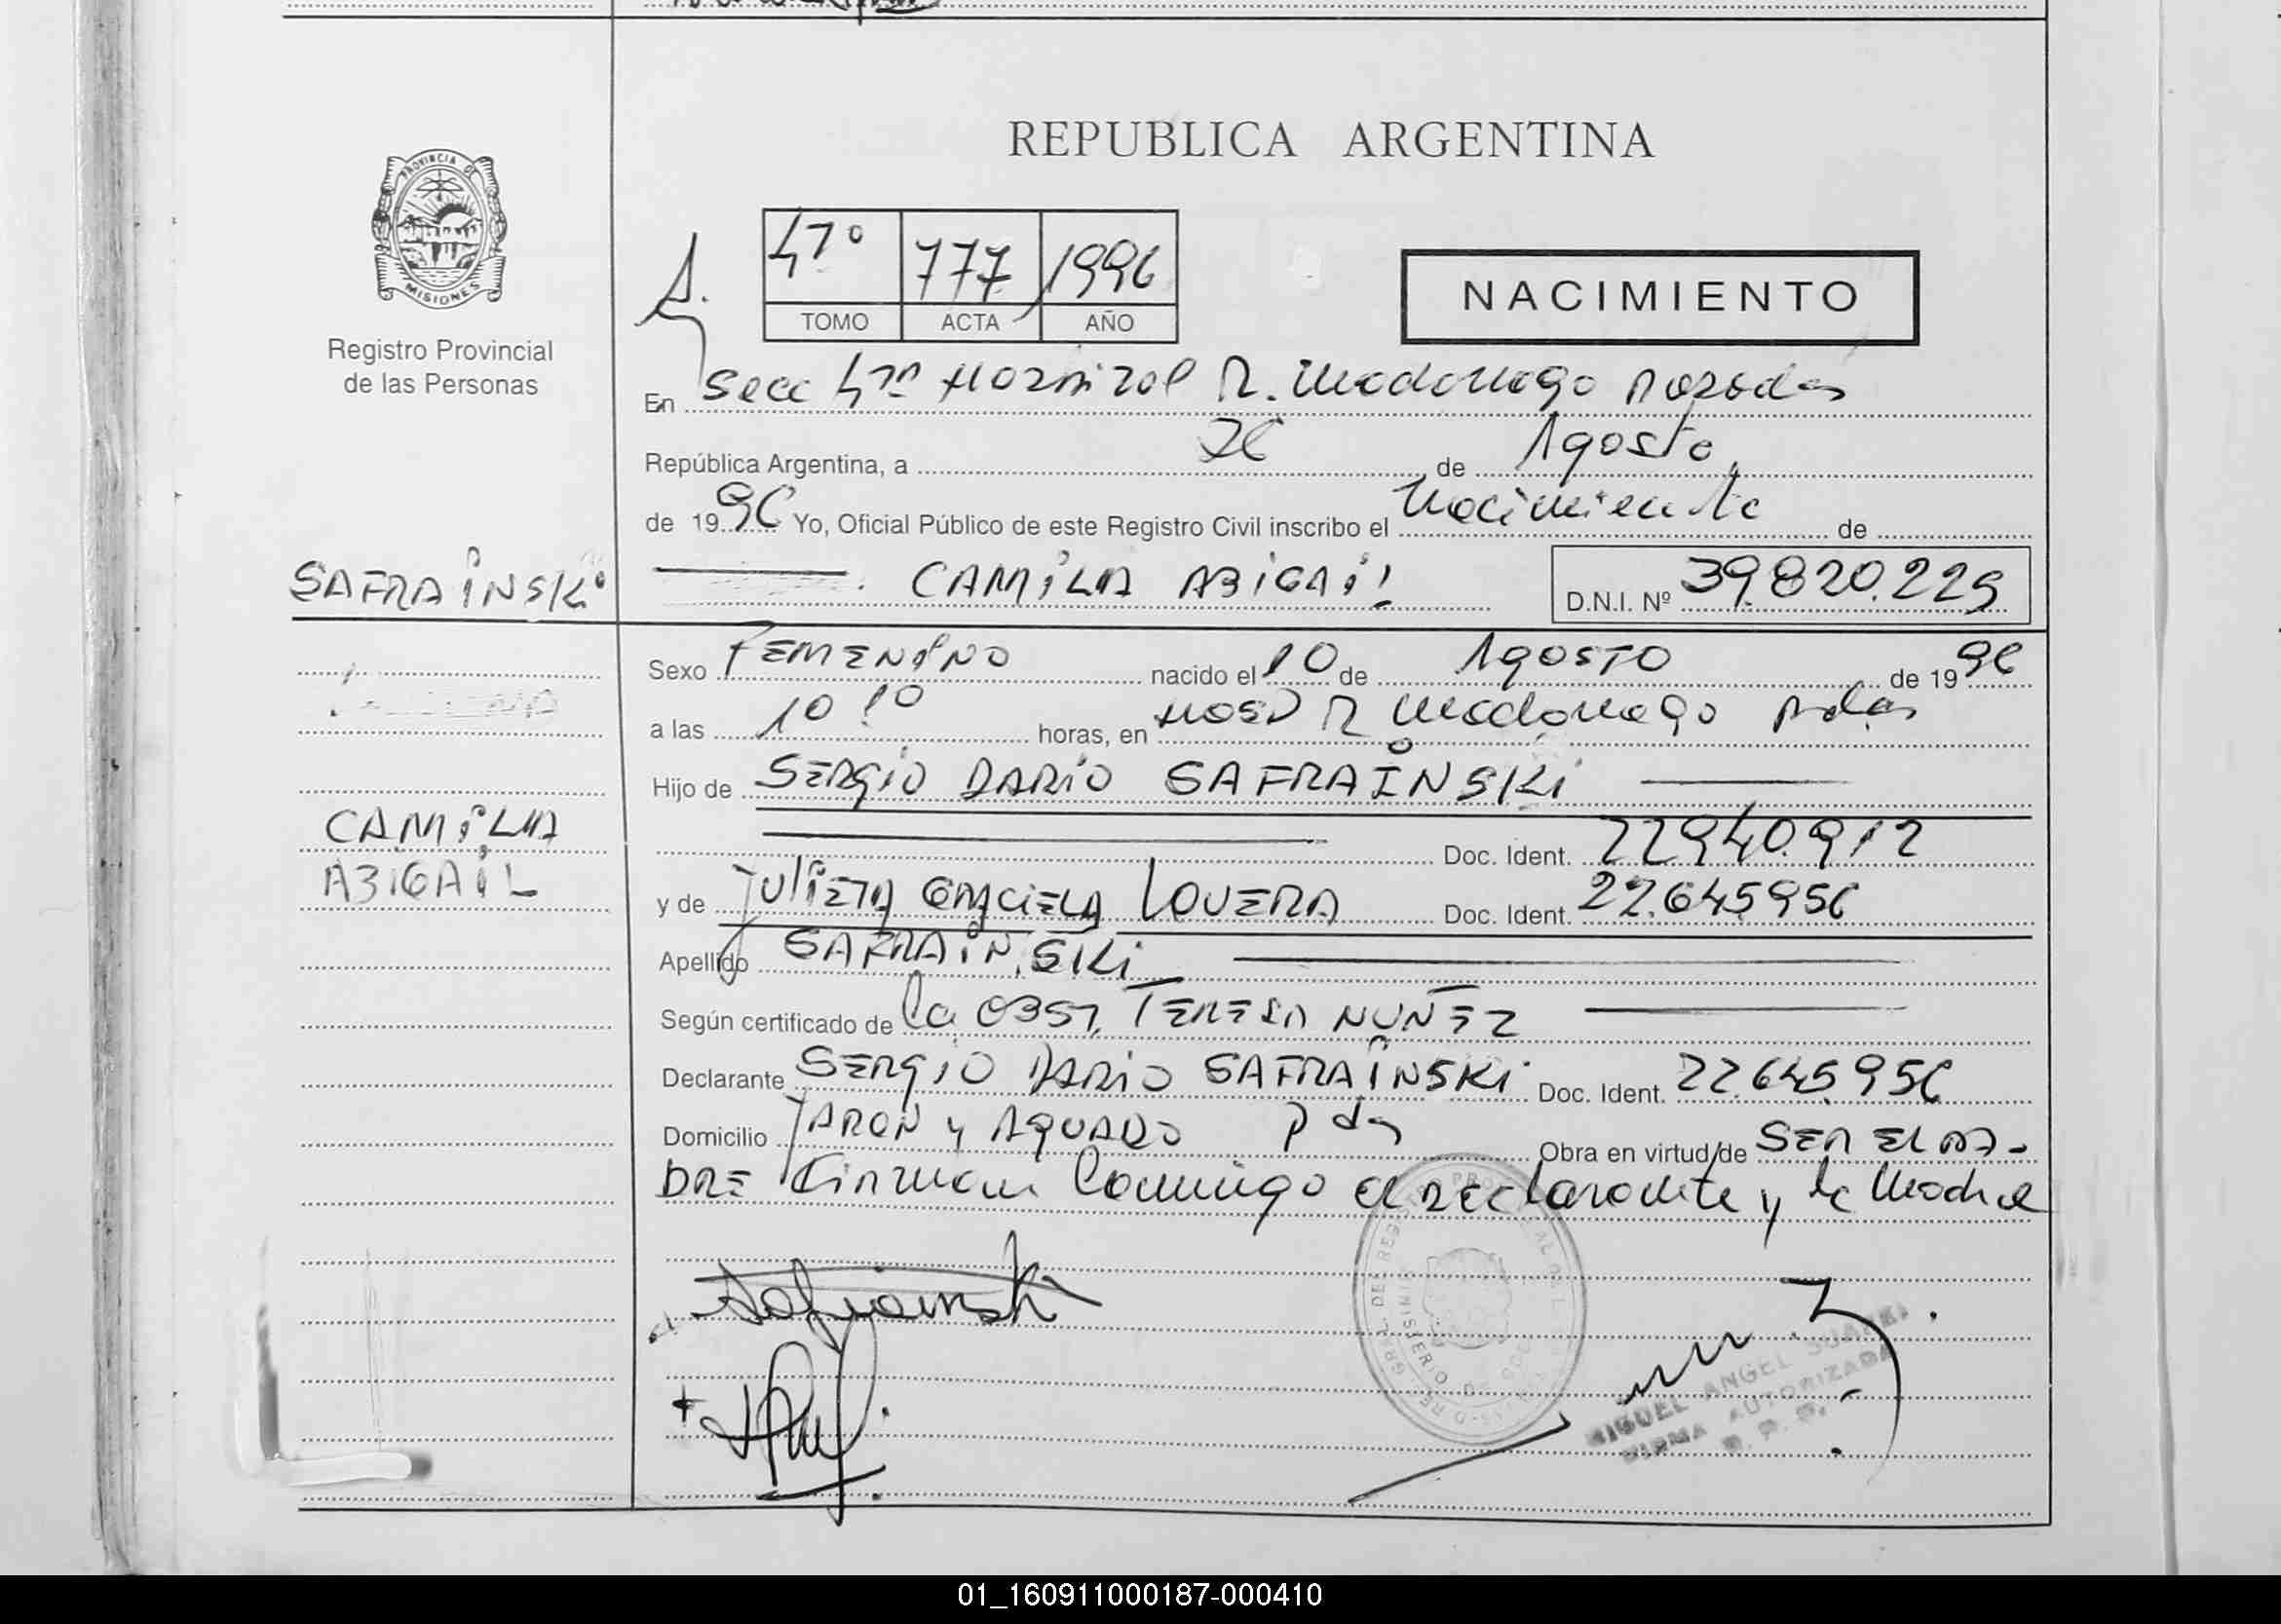 REPUBLICA ARGENTINA
PROVINCIA DE
MISIONES
Registro Provincial
de las Personas
47º 777 1996
TOMO ACTA AÑO
NACIMIENTO
En Secc 47ª Hospital R. Madariaga Posadas
República Argentina, a 26 de Agosto
de 1996 Yo, Oficial Público de este Registro Civil inscribo el Nacimiento de
SAFRAINSKI
CAMILA ABIGAIL D.N.I. Nº 39.820.229
Sexo FEMENINO nacido el 10 de AGOSTO de 1996
a las 10 10 horas, en HOSP R Madariaga Pdas
Hijo de SERGIO DARIO SAFRAINSKI
Doc. Ident. 22940.912
CAMILA
ABIGAIL
y de JULIETA GRACIELA LOVERA Doc. Ident. 22.645956
Apellido SAFRAINSKI
Según certificado de la OBST. TERESA NUÑEZ
Declarante SERGIO DARIO SAFRAINSKI Doc. Ident. 22.645.956
Domicilio y AGUADO Pdas Obra en virtud/de SER EL PA-
DRE Firman Conmigo el Declarante y la Madre
MIGUEL ANGEL SUAREZ
FIRMA AUTORIZADA
R. P. P.
01_160911000187-000410